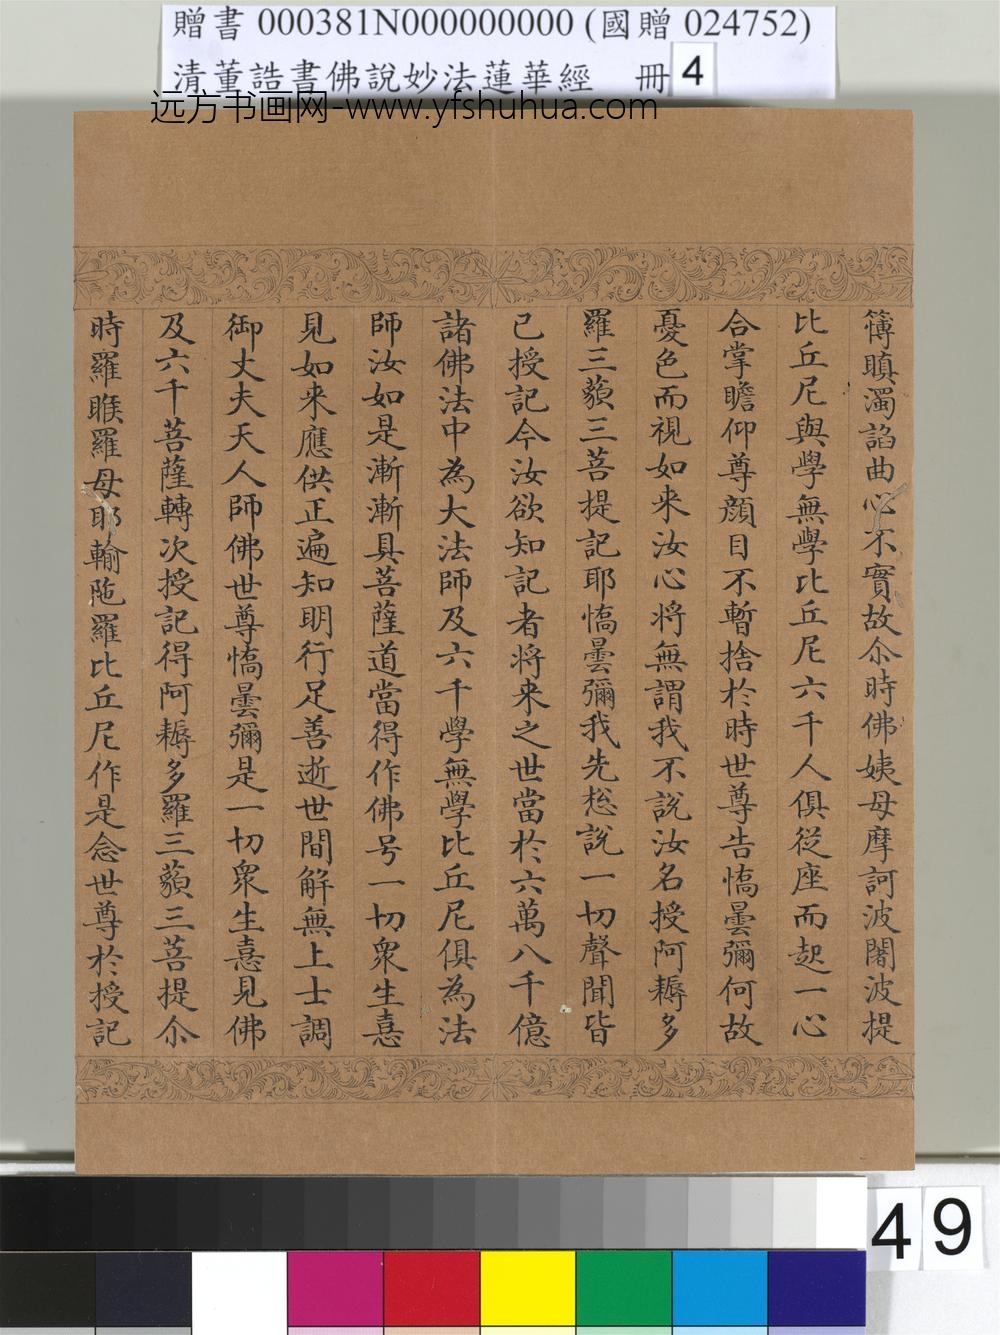 贈書 000381N000000000 (國贈 024752)
清董誥書佛說妙法蓮華經 冊 4
远方书画网-www.yfshuhua.com
簿瞋濁諂曲心不實故尒時佛姨母摩訶波闍波提
比丘尼與學無學比丘尼六千人俱從座而起一心
合掌瞻仰尊顏目不暫捨於時世尊告憍曇彌何故
憂色而視如來汝心將無謂我不說汝名授阿耨多
羅三藐三菩提記耶憍曇彌我先揔說一切聲聞皆
已授記今汝欲知記者將來之世當於六萬八千億
諸佛法中為大法師及六千學無學比丘尼俱為法
師汝如是漸漸具菩薩道當得作佛号一切衆生憙
見如來應供正遍知明行足善逝世間解無上士調
御丈夫天人師佛世尊憍曇彌是一切衆生憙見佛
及六千菩薩轉次授記得阿耨多羅三藐三菩提尒
時羅睺羅母耶輸陁羅比丘尼作是念世尊於授記
49